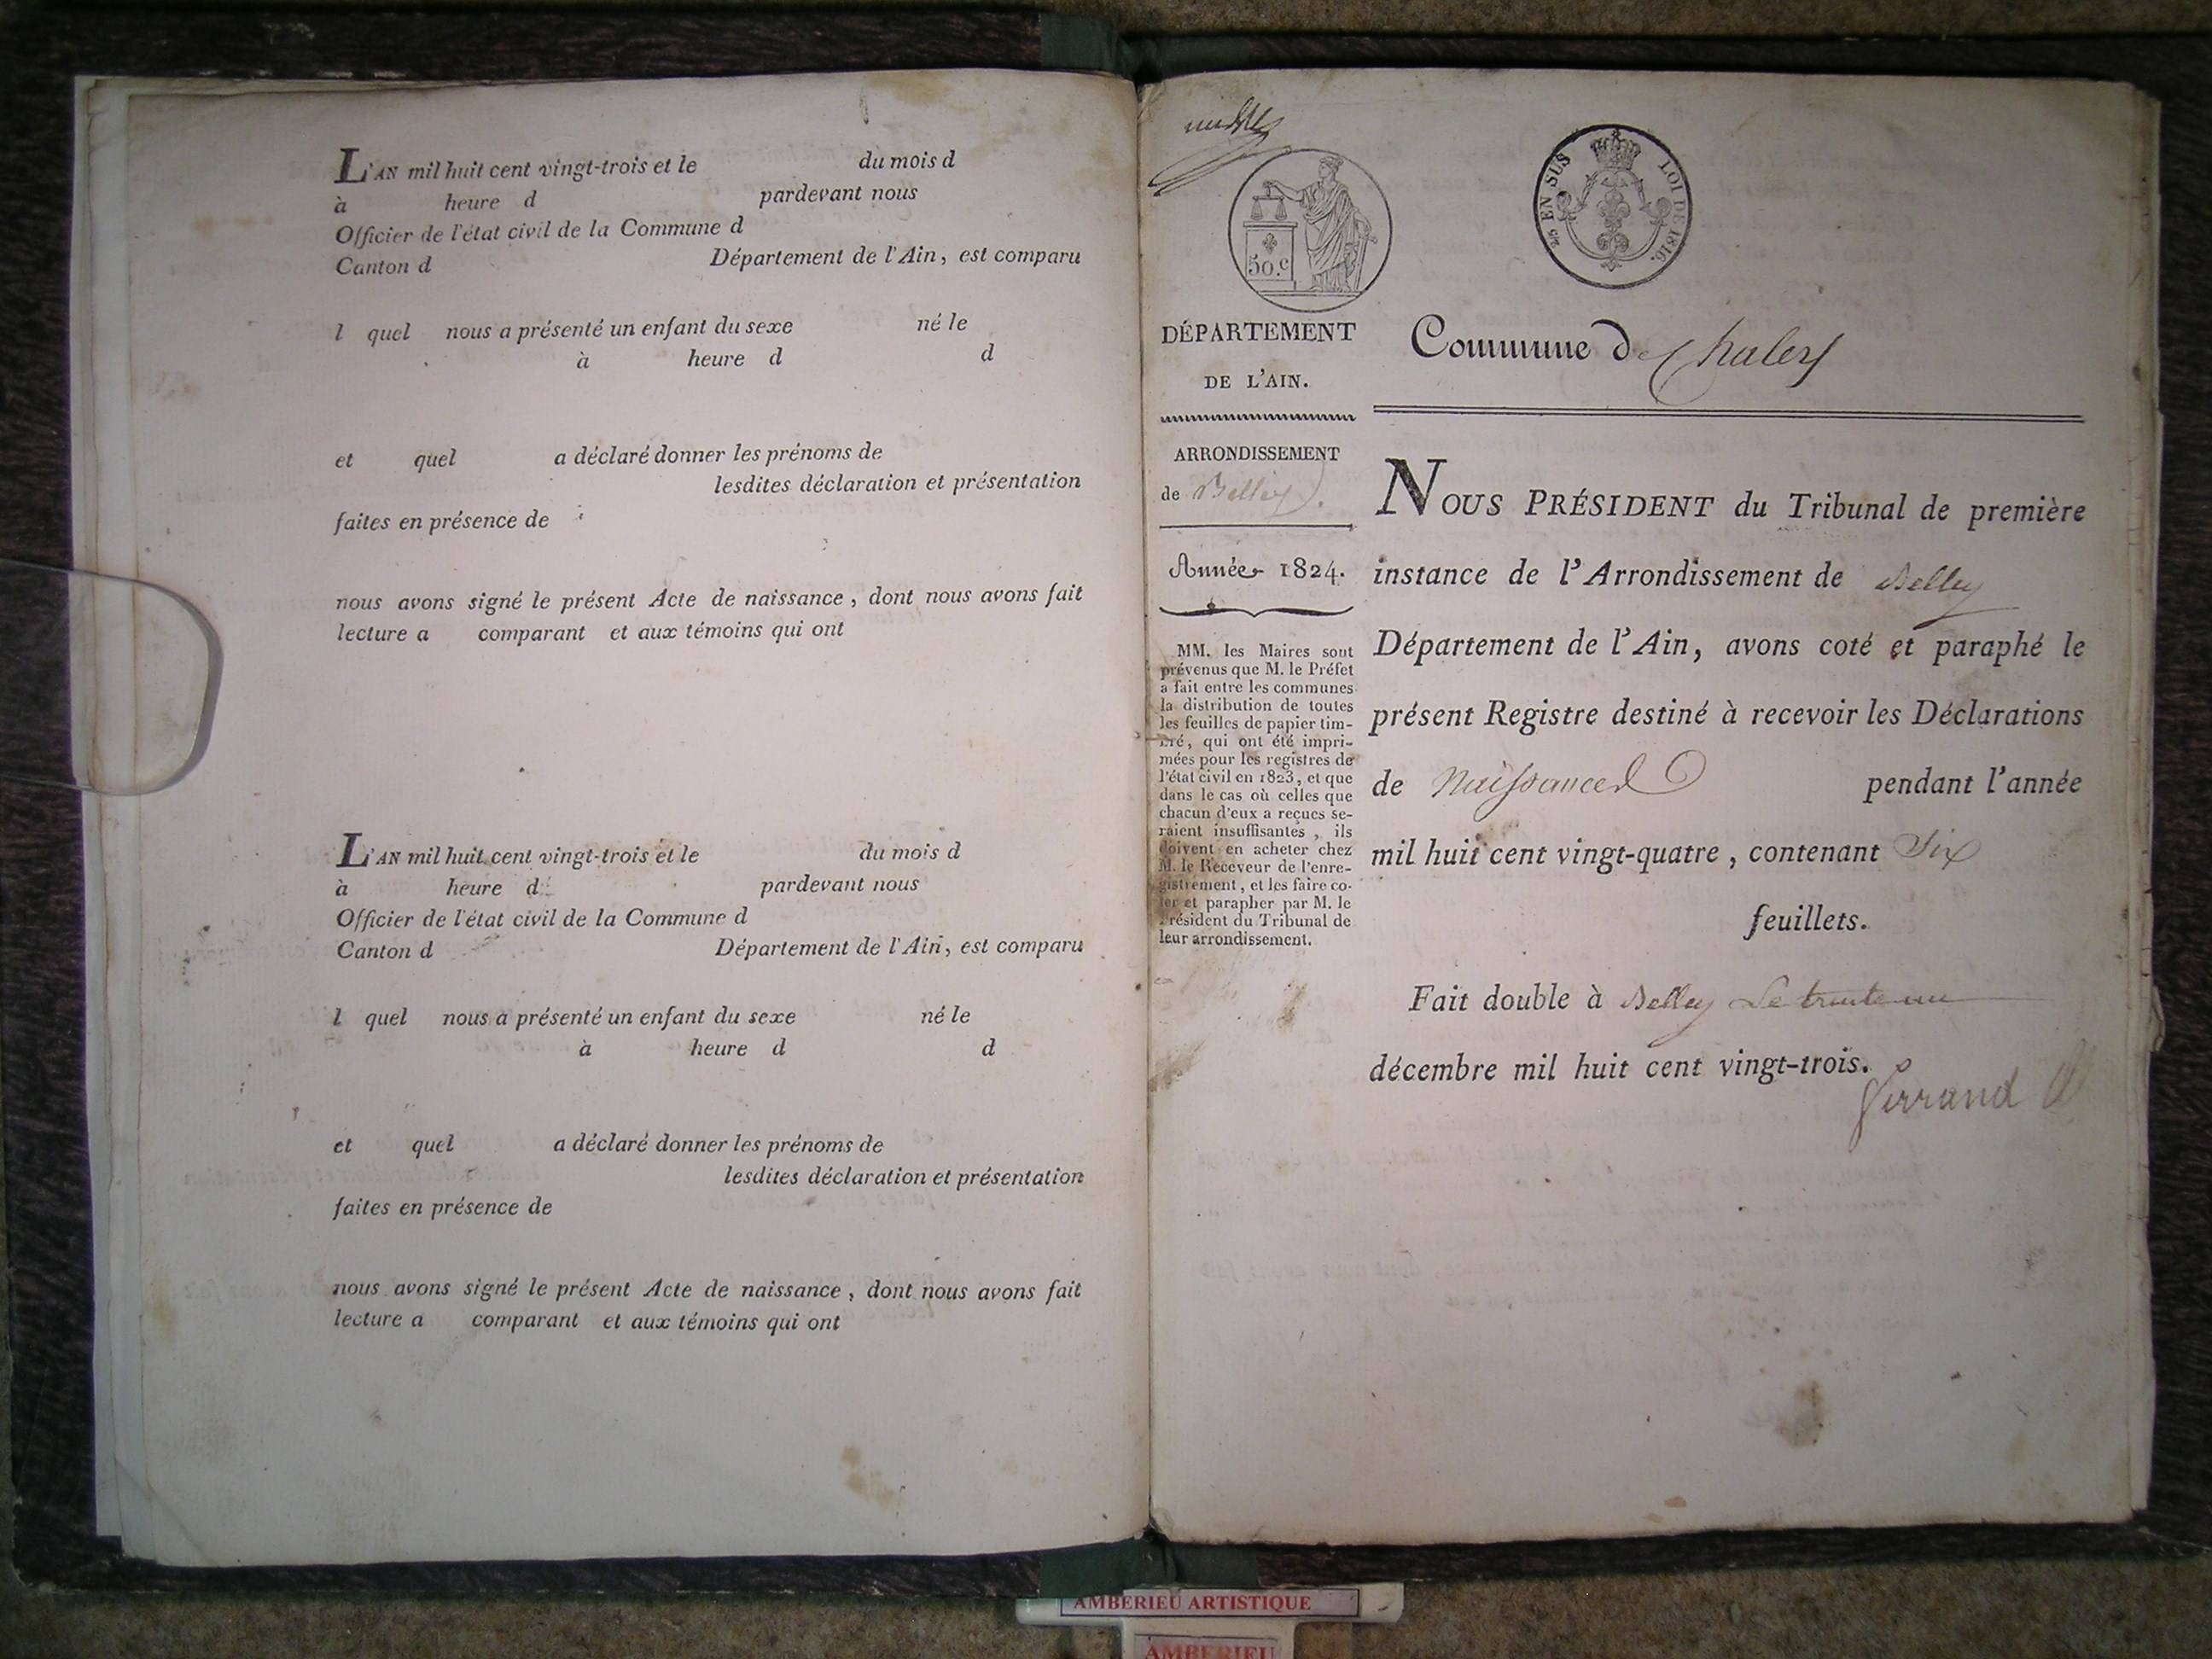 L'AN mil huit cent vingt-trois et le du mois d
à heure d pardevant nous
Officier de l'état civil de la Commune d
Canton d Département de l'Ain, est comparu
l quel nous a présenté un enfant du sexe né le
à heure d d
et quel a déclaré donner les prénoms de
lesdites déclaration et présentation
faites en présence de
nous avons signé le présent Acte de naissance, dont nous avons fait
lecture a comparant et aux témoins qui ont
L'AN mil huit cent vingt-trois et le du mois d
à heure d pardevant nous
Officier de l'état civil de la Commune d
Canton d Département de l'Ain, est comparu
l quel nous a présenté un enfant du sexe né le
à heure d d
et quel a déclaré donner les prénoms de
lesdites déclaration et présentation
faites en présence de
nous avons signé le présent Acte de naissance, dont nous avons fait
lecture a comparant et aux témoins qui ont
50.c
EN SUS LOI DE 1816.
DÉPARTEMENT
DE L'AIN.
ARRONDISSEMENT
de Belley.
Année 1824.
MM. les Maires sont
prévenus que M. le Préfet
a fait entre les communes
la distribution de toutes
les feuilles de papier tim-
bré, qui ont été impri-
mées pour les registres de
l'état civil en 1823, et que
dans le cas où celles que
chacun d'eux a reçues se-
raient insuffisantes, ils
doivent en acheter chez
M. le Receveur de l'enre-
gistrement, et les faire co-
ter et parapher par M. le
Président du Tribunal de
leur arrondissement.
Commune de Chaley
NOUS PRÉSIDENT du Tribunal de première
instance de l'Arrondissement de Belley
Département de l'Ain, avons coté et paraphé le
présent Registre destiné à recevoir les Déclarations
de Naissances pendant l'année
mil huit cent vingt-quatre, contenant Six
feuillets.
Fait double à Belley Le trente un
décembre mil huit cent vingt-trois.
AMBERIEU ARTISTIQUE
AMBERIEU